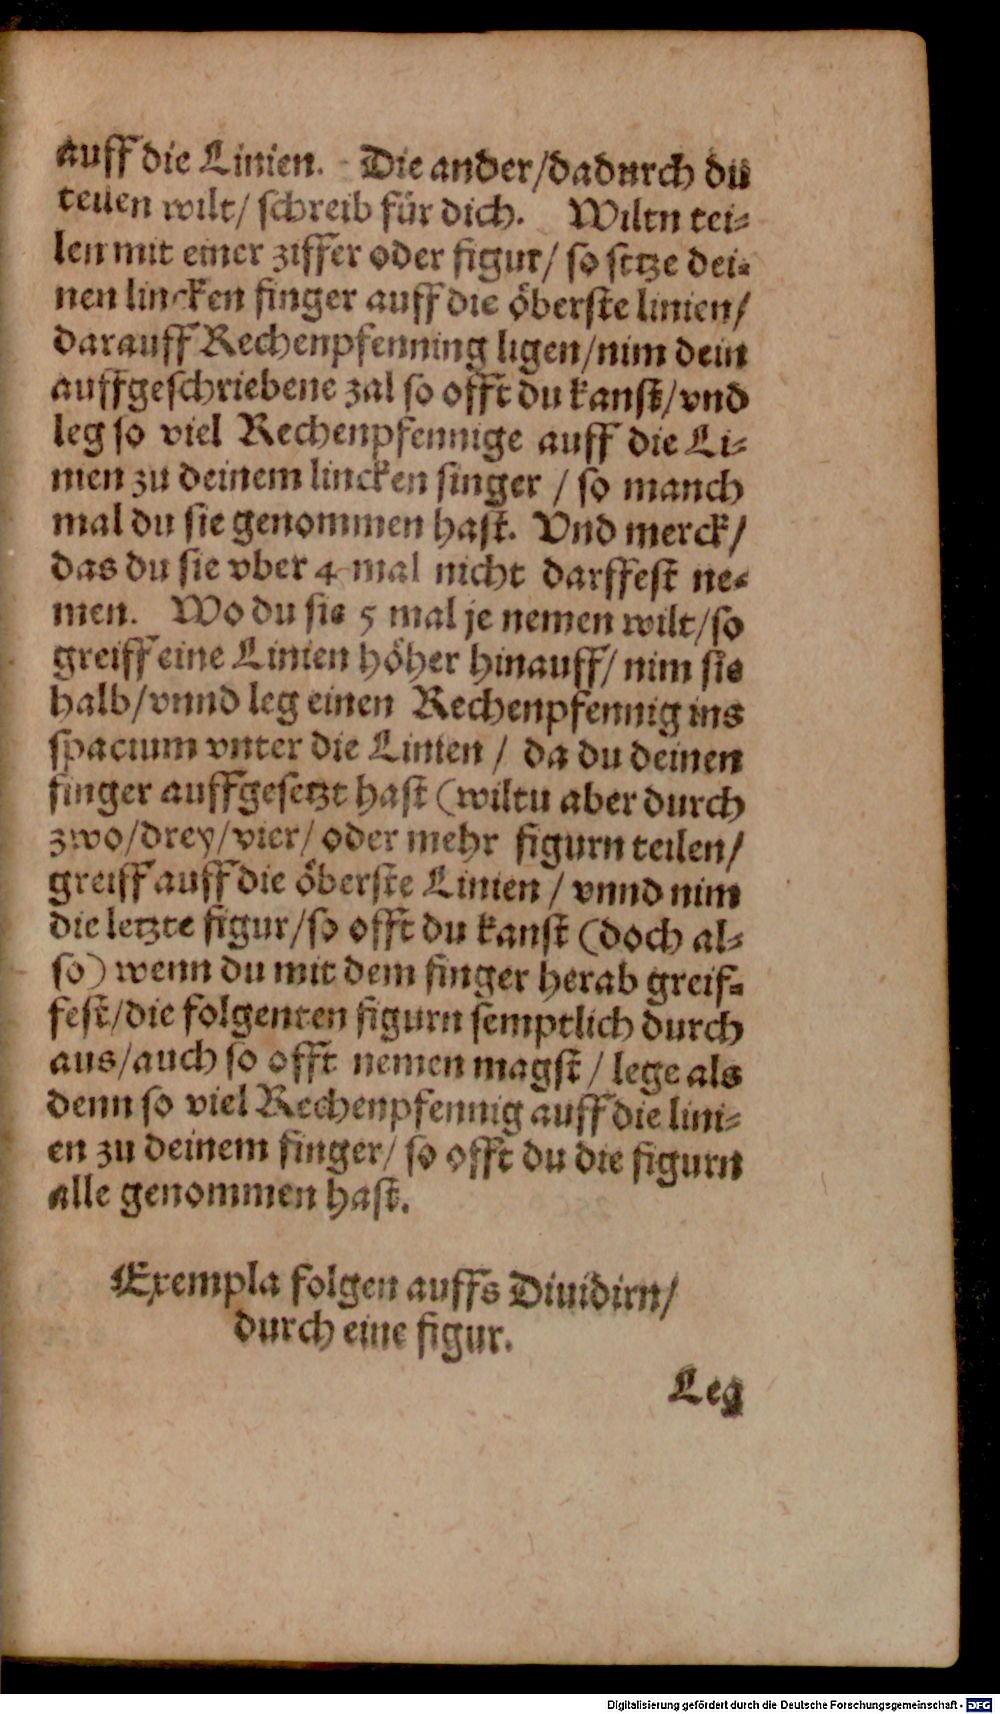 auff die Linien. Die ander/dadurch du
teilen wilt/ schreib für dich. Wiltn tei⸗
len mit einer ziffer oder figur/ so setze dei⸗
nen lincken finger auff die öberste linien/
darauff Rechenpfenning ligen/nim dein
auffgeschriebene zal so offt du kanst/vnd
leg so viel Rechenpfennige auff die Li⸗
nien zu deinem lincken finger / so manch
mal du sie genommen hast. Vnd merck/
das du sie vber 4 mal nicht darffest ne⸗
men. Wo du sie 5 mal je nemen wilt/so
greiff eine Linien höher hinauff/ nim sie
halb/vnnd leg einen Rechenpfennig ins
spacium vnter die Linien / da du deinen
finger auffgesetzt hast (wiltu aber durch
zwo/drey/vier/ oder mehr figurn teilen/
greiff auff die öberste Linien / vnnd nim
die letzte figur/so offt du kanst (doch al⸗
so) wenn du mit dem finger herab greif⸗
fest/die folgenten figurn semptlich durch
aus/auch so offt nemen magst / lege als
denn so viel Rechenpfennig auff die lini⸗
en zu deinem finger/ so offt du die figurn
alle genommen hast.
Exempla folgen auffs Diuidirn/
durch eine figur.
Leg
Digitalisierung gefördert durch die Deutsche Forschungsgemeinschaft - DFG